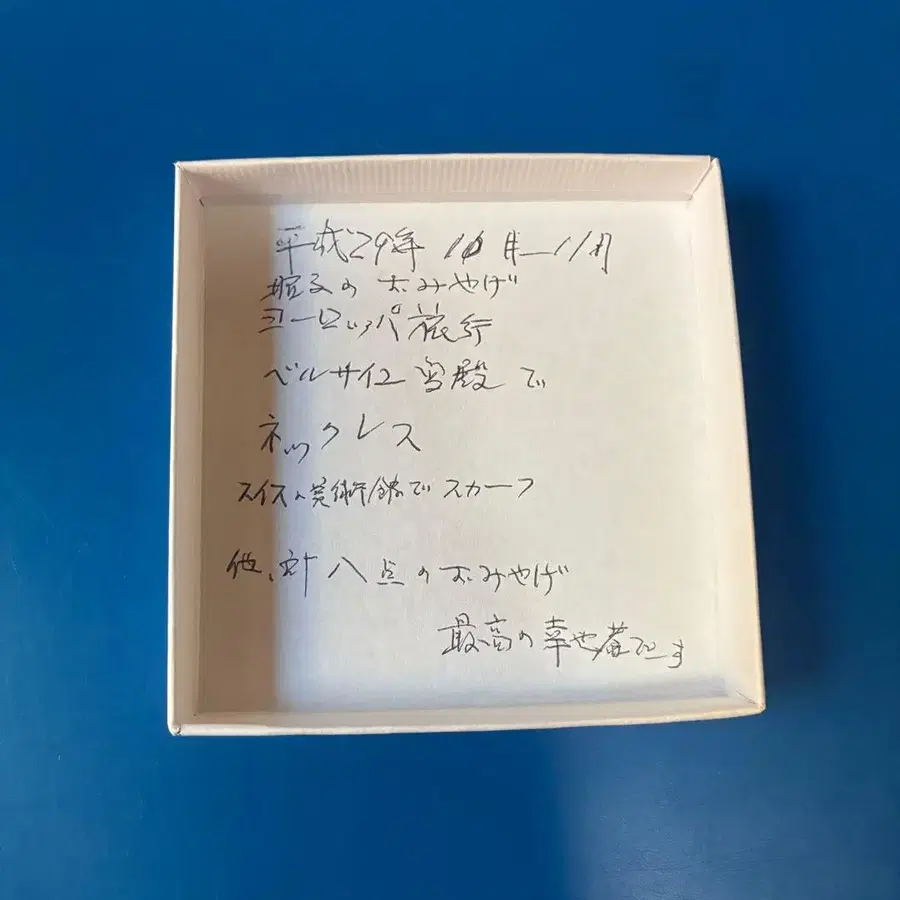 平成29年 10月―11月
のおみやげ
ヨーロッパ旅行
ベルサイユ宮殿で
ネックレス
スイスの美術館でスカーフ
他、計八点のおみやげ
最高の幸せ者です